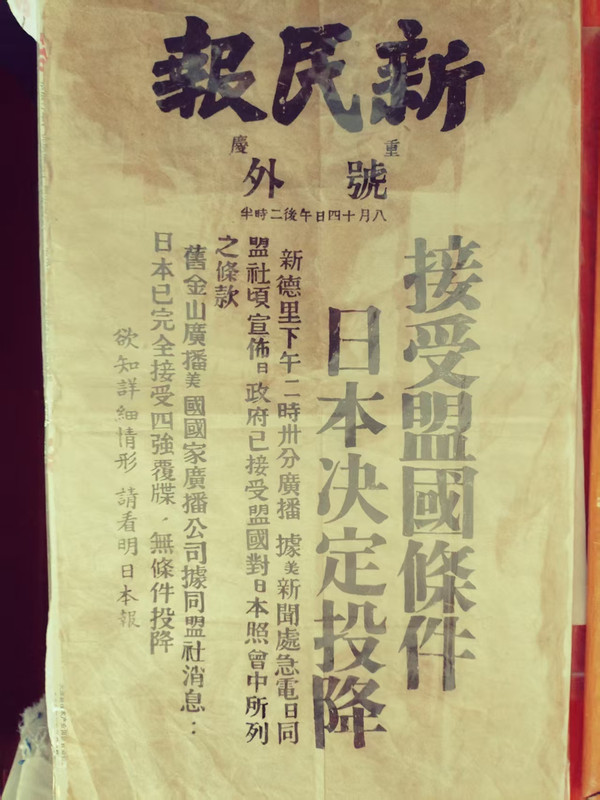 新民報
重慶
號外
八月十四日午後二時半
接受盟國條件
日本决定投降
新德里下午二時卅分廣播 據美新聞處急電日同
盟社頃宣佈日政府已接受盟國對日本照會中所列
之條款
舊金山廣播美國國家廣播公司據同盟社消息：
日本已完全接受四強覆牒，無條件投降
欲知詳細情形 請看明日本報